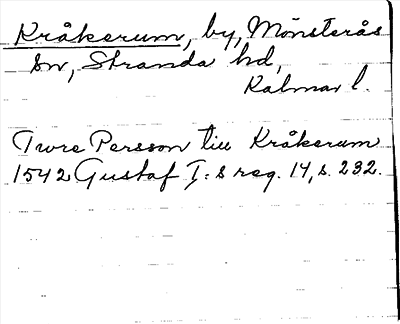 Kråkerum, by, Mönsterås
sn, Stranda hd,
Kalmar l.
Ture Persson till Kråkerum
1542 Gustaf I:s reg. 14, s. 232.